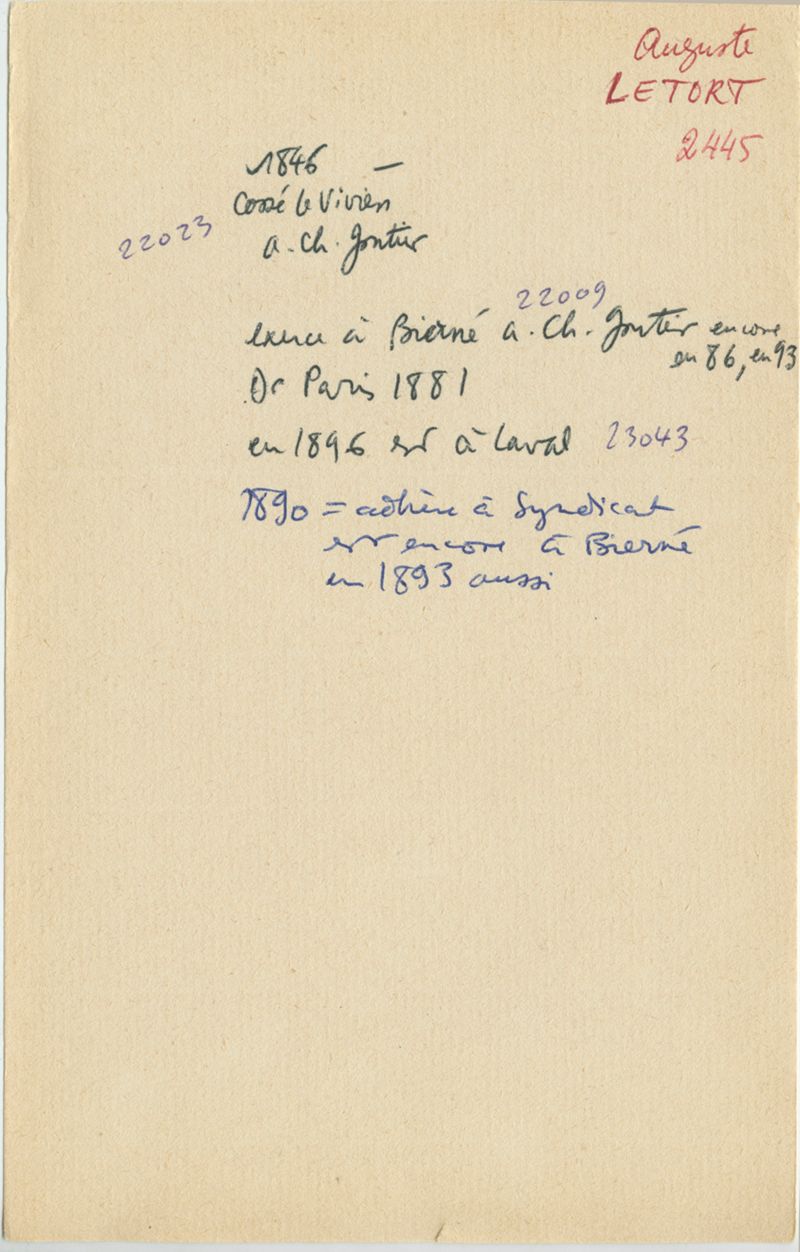 Auguste
LETORT
2445
1846 —
Cossé le Vivien
22023
a. Ch. Gontier
22009
exerce à Bierné a. Ch. Gontier encore
en 86, en 93
Dr Paris 1881
en 1896 est à Laval 23043
1890 = adhère à Syndicat
est encore à Bierné
en 1893 aussi